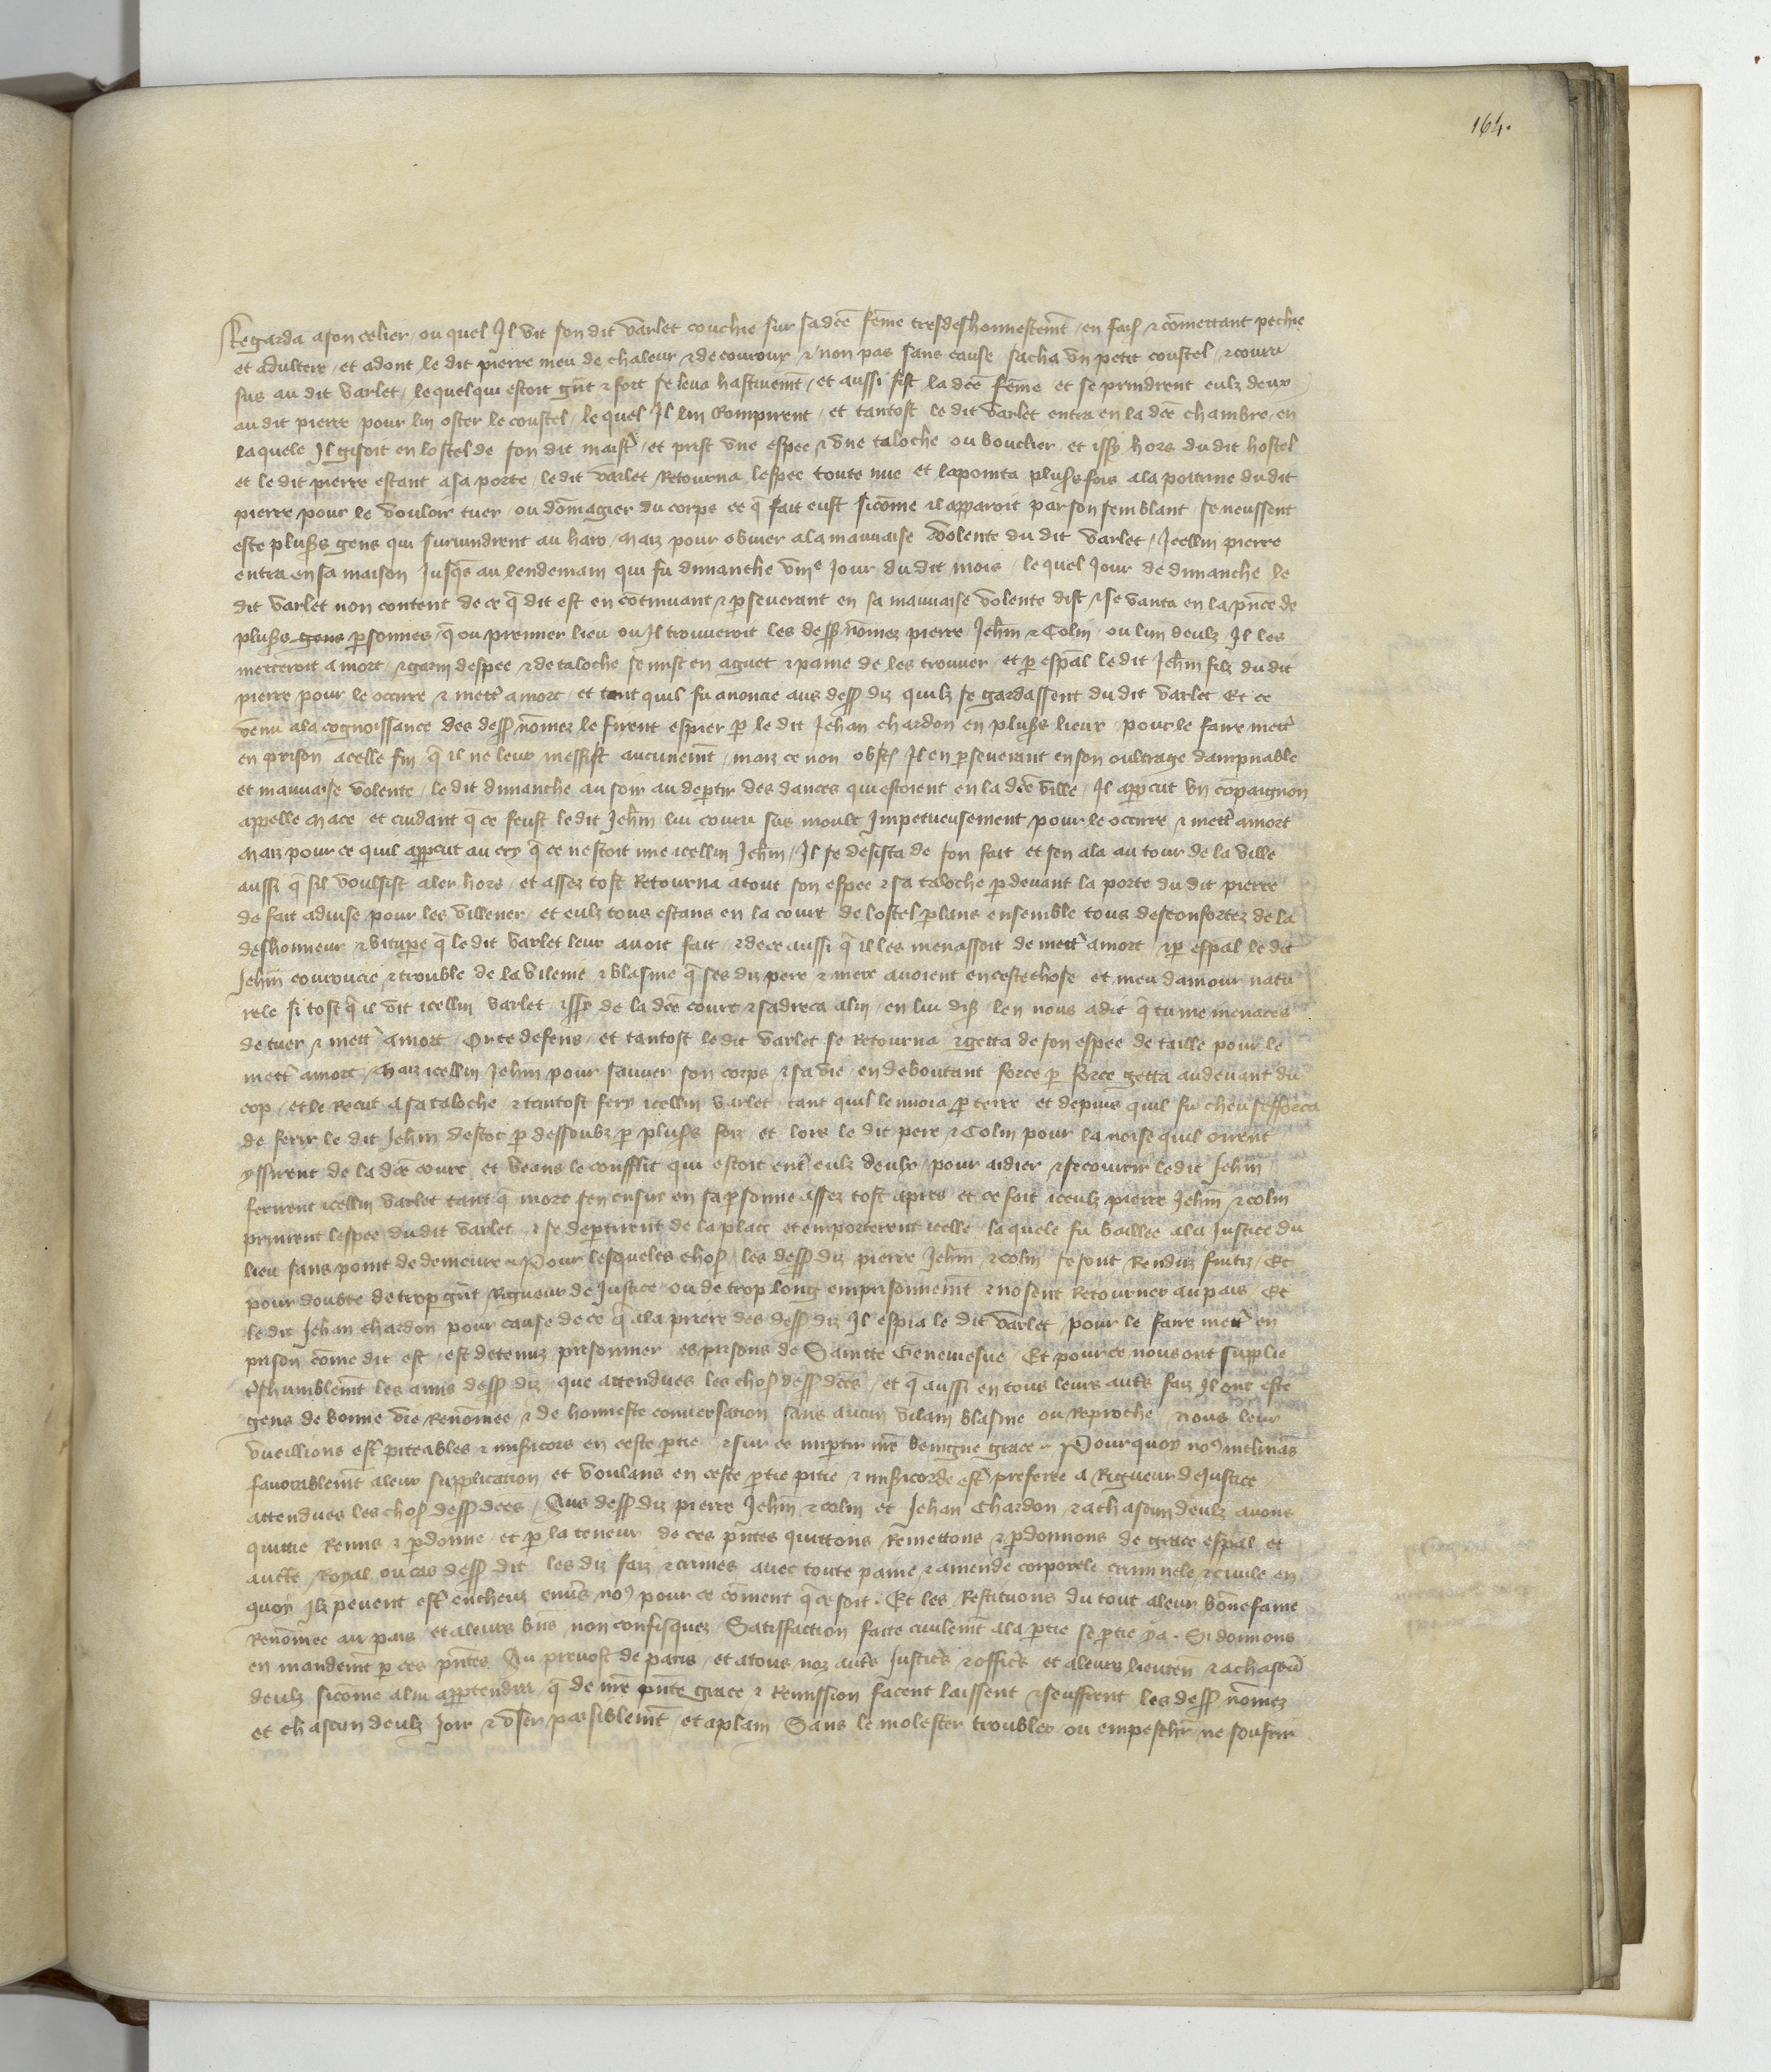 164.
Regarda a son celier, ou quel Il vit son dit varlet couchie sur sa dce feme tresdeshonnestemt, en fais & comettant pechie
et adultere, et adont le dit pierre meu de chaleur & de courour & non pas sans cause sacha un petit coustel, & couru
sus au dit varlet, lequel qui estoit gnt & fort se leva hastivemt, et aussi fist la dce feme et se prindrent eulz deux
au dit pierre pour lui oster le coustel, le quel Il lui Rompirent, et tantost le dit varlet entra en la dce chambre, en
laquele Il gisoit en lostel de son dit maistr, et prist une espee & une taloche ou bouclier et issy hors du dit hostel
et le dit pierre estant a sa porte, le dit varlet Retourna lespee toute nue et lapointa plusrs fois a la poitrine du dit
pierre pour le vouloir tuer ou domagier du corps ce q fait eust sicome il apparoit par son semblant se neussent
este plusrs gens qui survindrent au haro, Maiz pour obvier a la mauvaise volente du dit varlet, Icellui pierre
entra en sa maison Jusqs au lendemain qui fu dimanche viije Jour du dit mois, le quel Jour de dimanche le
dit varlet non content de ce q dit est en continuant & pseverant en sa mauvaise volente dist & se vanta en la pnce de
plusrs gens psonnes, q ou premier lieu ou Il trouveroit les dess nomez pierre, Jehm & Colin, ou lun deulz, Il les
metteroit a mort, & garni despee & de taloche se mist en aguet & paine de les trouver, et p espal le dit Jehm filz du dit
pierre pour le occirre & mettr a mort, et tant quil fu anoncie aus dess diz quilz se gardassent du dit varlet Et ce
venu a la cognoissance des dess nomez le firent espier p le dit Jehan chardon en plusrs lieux, pour le faire mettr
en prison a celle fin q il ne leur meffist aucunemt, maiz ce non obst Il en pseverant en son oultrage dampnable
et mauvaise volente, le dit dimanche au soir au deptir des dances qui estoient en la dce ville, Il appcut un copaignon
appelle Mace, et cuidant q ce feust le dit Jehm lui couru sus moult Impetueusement pour le occirre & mettr a mort
Maiz pour ce quil appcut au cry q ce nestoit mie icellui Jehm, Il se desista de son fait et sen ala au tour de la ville
aussi q sil voulsist aler hors, et assez tost Retourna atout son espee & sa taloche p devant la porte du dit pierre
de fait advise pour les villener, et eulz tous estans en la court de lostel plans ensemble tous desconfortez de la
deshonneur & vitupe q le dit varlet leur avoit fait, & de ce aussi q il les menassoit de mettr a mort, & p espal le dit
Jehm courroucie & trouble de la vilenie & blasme q ses diz pere & mere avoient en ceste chose et meu damour natu
rele si tost q il vit icellui varlet issy de la dce court & sadreca a lui, en lui dist len nous a dit q tu me menaces
de tuer & mettr a mort, Or te defens, et tantost le dit varlet se Retourna & getta de son espee de taille pour le
mettr a mort, Maiz icellui Jehm pour sauver son corps & sa vie en deboutant force p force getta au devant du
cop, et le Recut a sa taloche, & tantost fery icellui varlet tant quil le mua p terre et depuis quil fu cheu sefforca
de ferir le dit Jehm destoc p dessoubz p plusrs foiz et lors le dit pere & Colin pour la noise quil oirent
yssirent de la dce court, et veans le confflit qui estoit entr eulz deulx, pour aidier & secourir le dit Jehm
ferirent icellui varlet tant q mort sen ensui en sa psonne assez tost apres et ce fait iceulz pierre Jehm & colin
prinrent lespee du dit varlet, & se deptirent de la place et emporterent icelle laquele fu baillee a la Justice du
lieu sans point de demeure, Pour lesqueles chos, les dess diz pierre Jehm & colin se sont Renduz fuitiz, Et
pour doubte de trop gnt Rigueur de Justice ou de trop long emprisonnemt & nosent Retourner au pais, Et
le dit Jehan chardon pour cause de ce q a la priere des dess diz Il espia le dit varlet pour le faire mettr en
prison come dit est, est detenuz prisonnier es prisons de Saincte Geneviesve, Et pour ce nous ont supplie
tshumblemt les amis dess diz, que attendues les chos dess dces, et q aussi en tous leurs autrs faiz Il ont este
gens de bonne vie Renomee & de honneste conversation sans aucun vilain blasme ou Reproche, nous leur
vueillions estr piteables & misicors en ceste ptie & sur ce imptir nre benigne grace, Pourquoy nos inclinans
favorablemt a leur supplication et voulans en ceste ptie pitie & misicorde estr preferee a Rigueur de Justice
attendues les chos dess dces, Aus dess diz pierre Jehm & colin et Jehan Chardon, & a chascun deulz avons
quittie Remis & pdonne et p la teneur de ces pntes quittons Remettons & pdonnons de grace espal et
auctte Royal ou cas dess dit les diz faiz & crimes avec toute paine & amende corporele criminele & civile en
quoy Ilz pevent estr encheuz envs nos pour ce coment q ce soit. Et les Restituons du tout a leur bone fame
Renomee au pais et a leurs bns non confisquez Satisffaction faite civilemt a la ptie se ptie y a. Si donnons
en mandemt p ces pntes Au prevost de paris, et a tous noz autrs Justicrs & officrs et a leurs lieuten & a chascun
deulz sicome a lui apptendra q de nre pnte grace & Remission facent laissent & seuffrent les dess nomez
et chascun deulz Joir & user paisiblemt, et a plain Sans le molester troubler ou empeschr ne souffrir